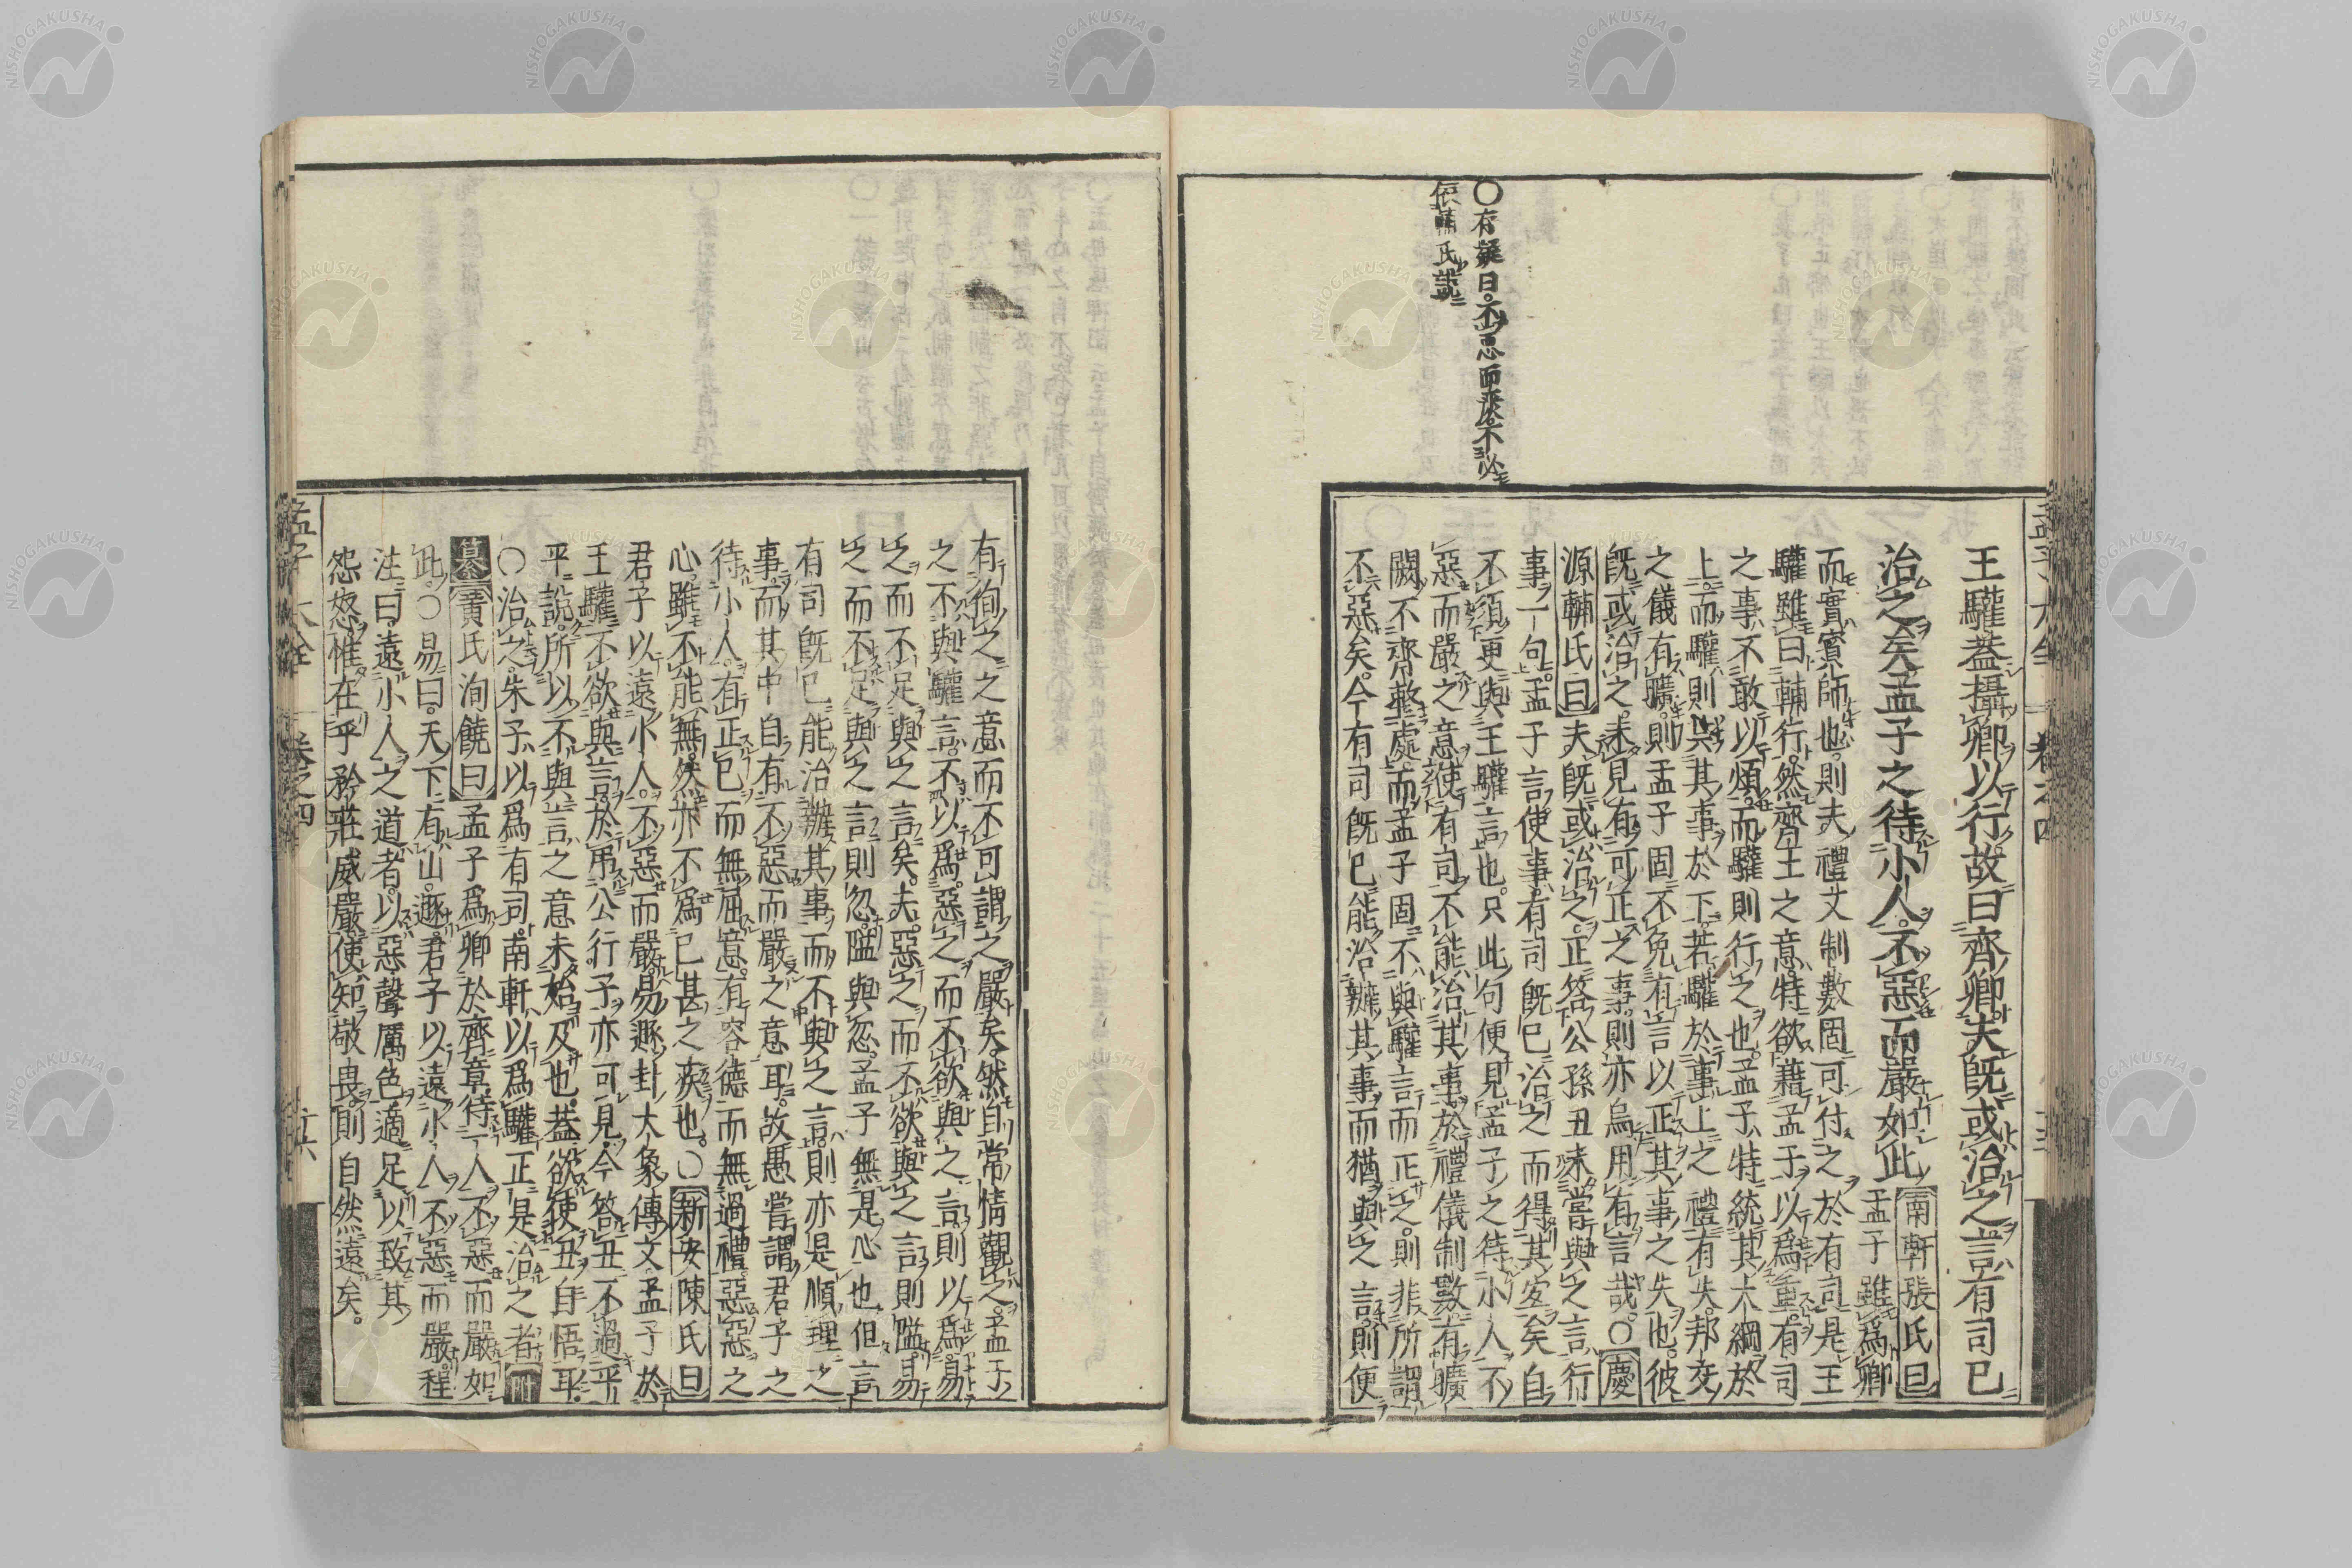 ○存疑曰不惡而嚴不必
依輔氏說
王驩蓋攝卿以行故曰齊卿夫既或治之言有司已
治之矣孟子之待小人不惡而嚴如此南軒張氏曰孟子雖爲卿
而實賓師也則夫禮文制數固可付之於有司是王
驩雖曰輔行然齊王之意特欲藉孟子以爲重有司
之事不敢以煩而驩則行之也孟子特統其大綱於
上而驩則共其事於下若驩於事上之禮有失邦交
之儀有曠則孟子固不免有言以正其事之失也彼
既或治之未見有可正之事則亦烏用有言哉○慶
源輔氏曰夫既或治之正答公孫丑未嘗與之言行
事一句孟子言使事有司既已治之而得其宜矣自
不須更與王驩言也只此句便見孟子之待小人不
惡而嚴之意使有司不能治其事於禮儀制數有曠
闕不齊整處而孟子固不與驩言而正之則非所謂
不惡矣今有司既已能治辦其事而猶與之言則便
有徇之之意而不可謂之嚴矣然自常情觀之孟子
之不與驩言不以爲惡之而不欲與之言則以爲易
之而不足與之言矣夫惡之而不欲與之言則隘易
之而不足與之言則忽隘與忽孟子無是心也但言
有司既已能治辦其事而不與之言則亦是順理之
事而其中自有不惡而嚴之意耳故愚嘗謂君子之
待小人有正已而無屈意有容德而無過禮惡惡之
心雖不能無然亦不爲已甚之疾也○新安陳氏曰
君子以遠小人不惡而嚴易遯卦大象傳文孟子於
王驩不欲與言於弔公行子亦可見今答丑不過平
平說所以不與言之意未始及也蓋欲使丑自悟耳
○治之朱子以爲有司南軒以爲驩正是治之者附
纂黃氏洵饒曰孟子爲卿於齊章待人不惡而嚴如
此○易曰天下有山遯君子以遠小人不惡而嚴程
注曰遠小人之道者以惡聲厲色適足以致其
怨怒惟在乎矜莊威嚴使知敬畏則自然遠矣
孟子大全 卷之四